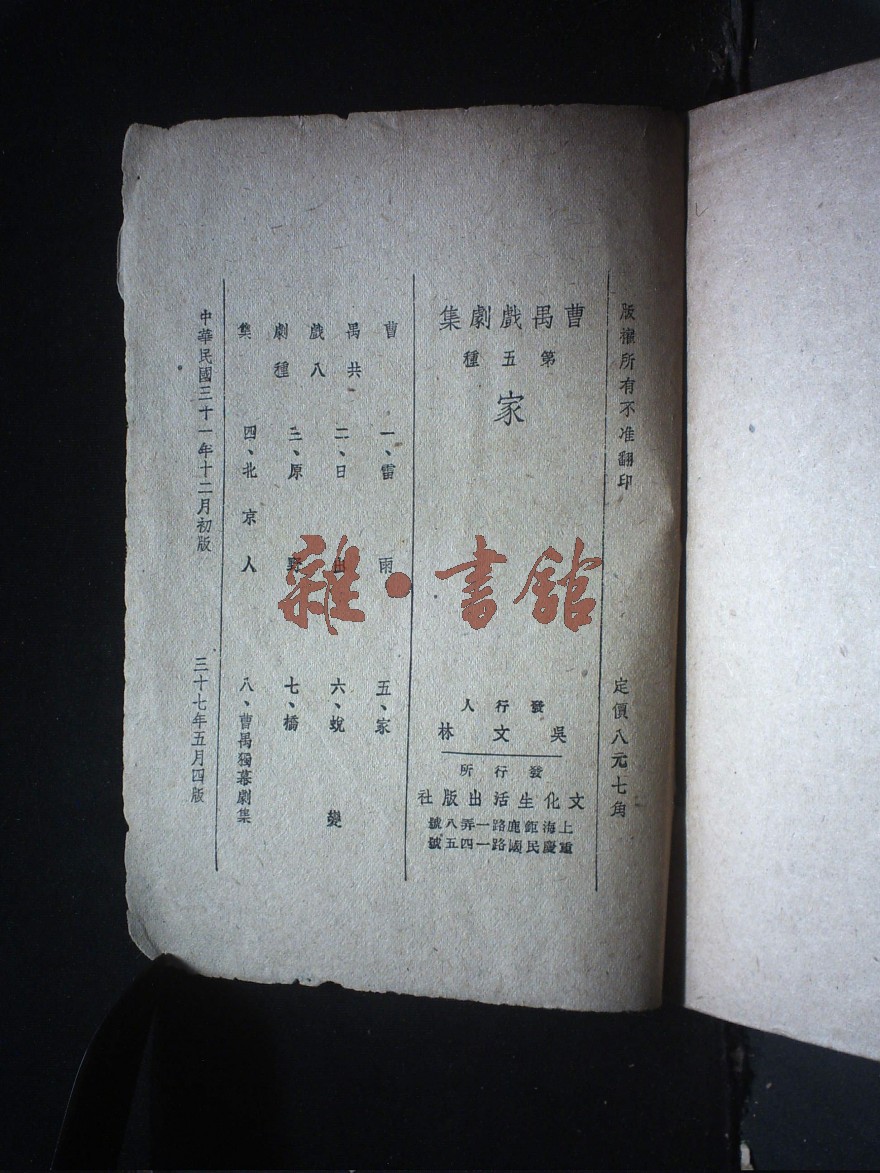 版權所有不准翻印
定價八元七角
曹禺戲劇集
第五種
家
發行人
吳文林
發行所
文化生活出版社
上海鉅鹿路一弄八號
重慶民國路一四五號
曹禺戲劇集
共八種
一、雷雨
二、日出
三、原野
四、北京人
五、家
六、蛻變
七、橋
八、曹禺獨幕劇集
中華民國三十一年十二月初版
三十七年五月四版
雜·書館